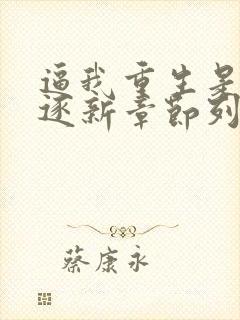 逼我重生是
逐新章节列
蔡康永